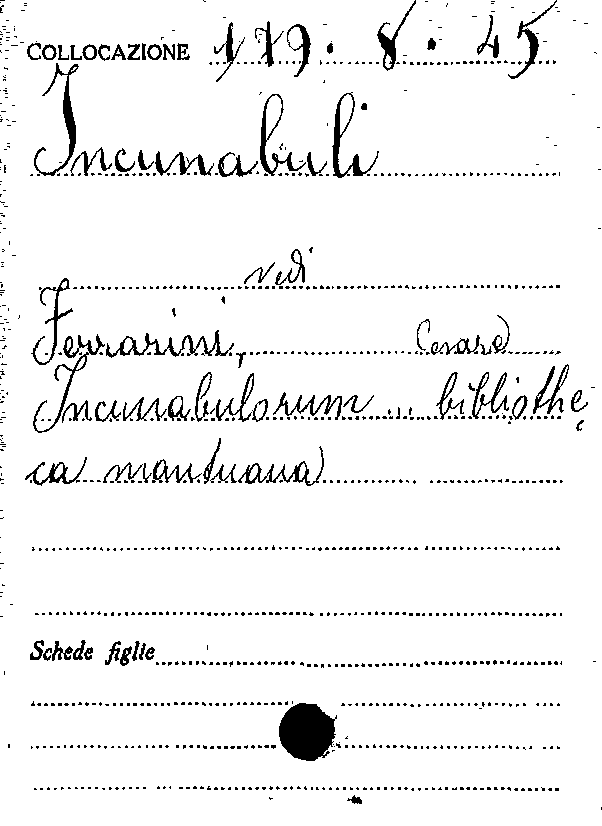 COLLOCAZIONE 179. 8. 45
Incunabuli
vedi
Ferrarini, Cesare
Incunabulorum ... bibliothe
ca mantuana
Schede figlie